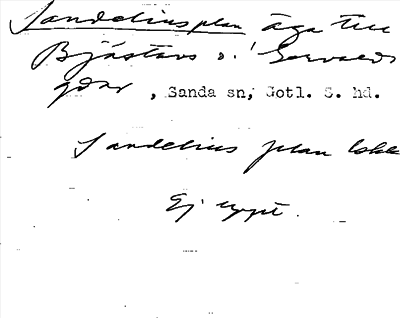 Sandelius plan äga till
Bjästavs o. Gervalds
gdar, Sanda sn, Gotl. S. hd.
Sandelius plan lokk
Ej uppt.